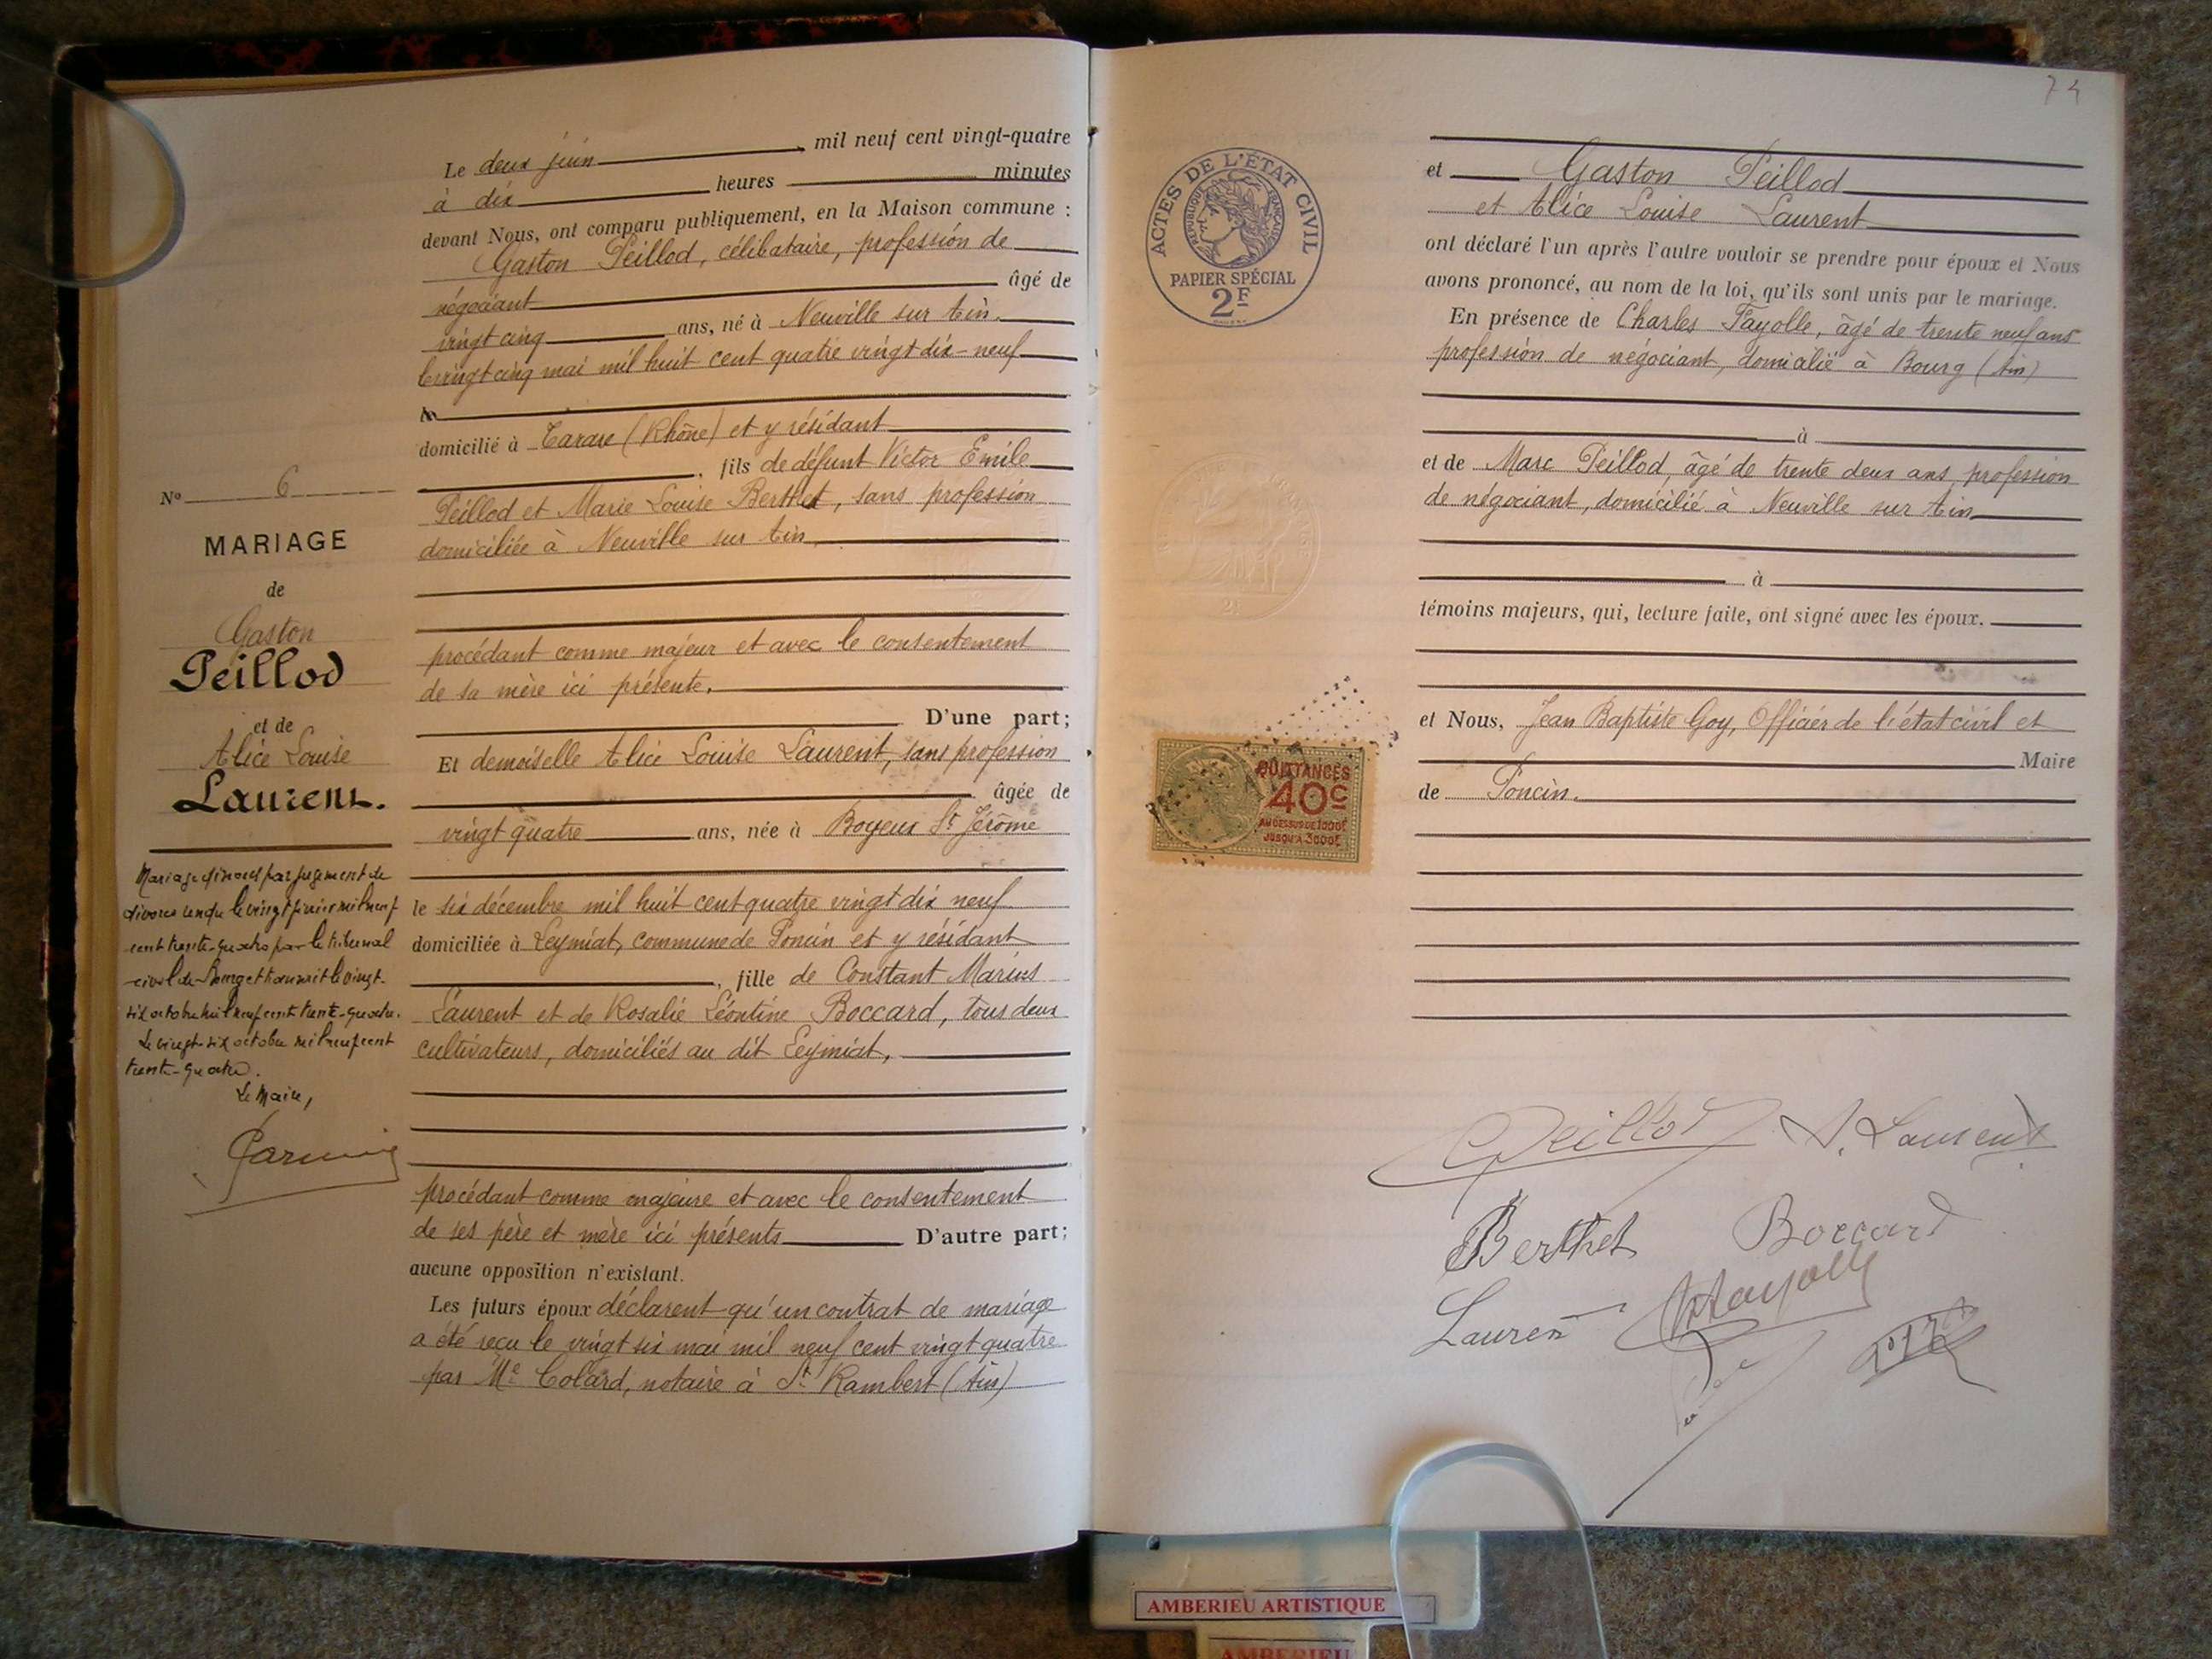 Le deux juin mil neuf cent vingt-quatre
à dix heures minutes
devant Nous, ont comparu publiquement, en la Maison commune :
Gaston Peillod, célibataire, profession de
négociant âgé de
vingt cinq ans, né à Neuville sur Ain,
le vingt cinq mai mil huit cent quatre vingt dix-neuf
domicilié à Tarare (Rhône) et y résidant
, fils de défunt Victor Emile
Peillod et Marie Louise Berthet, sans profession
domiciliée à Neuville sur Ain,
procédant comme majeur et avec le consentement
de sa mère ici présente.
D'une part;
Et demoiselle Alice Louise Laurent, sans profession
âgée de
vingt quatre ans, née à Boyeux St Jérôme
le six décembre mil huit cent quatre vingt dix neuf
domiciliée à Leymiat, commune de Poncin et y résidant
, fille de Constant Marius
Laurent et de Rosalie Léontine Boccard, tous deux
cultivateurs, domiciliés au dit Leymiat,
procédant comme majeure et avec le consentement
de ses père et mère ici présents D'autre part;
aucune opposition n'existant.
Les futurs époux déclarent qu'un contrat de mariage
a été reçu le vingt six mai mil neuf cent vingt quatre
par Me Colard, notaire à St Rambert (Ain)
No 6
MARIAGE
de
Gaston
Peillod
et de
Alice Louise
Laurent.
Mariage dissous par jugement de
divorce rendu le vingt juin mil neuf
cent trente-quatre par le tribunal
civil de Bourg et transcrit le vingt-
six octobre mil neuf cent trente-quatre.
Le vingt-six octobre mil neuf cent
trente-quatre.
Le Maire,
74
ACTES DE L'ÉTAT CIVIL
RÉPUBLIQUE FRANÇAISE
PAPIER SPÉCIAL
2F
et Gaston Peillod
et Alice Louise Laurent
ont déclaré l'un après l'autre vouloir se prendre pour époux et Nous
avons prononcé, au nom de la loi, qu'ils sont unis par le mariage.
En présence de Charles Fayolle, âgé de trente neuf ans
profession de négociant, domicilié à Bourg (Ain)
à
et de Marc Peillod, âgé de trente deux ans, profession
de négociant, domicilié à Neuville sur Ain
à
témoins majeurs, qui, lecture faite, ont signé avec les époux.
et Nous, Jean Baptiste Goy, Officier de l'état civil et
Maire
de Poncin.
QUITTANCES
40c
AU DESSUS DE 1000F
JUSQU'A 3000F
G Peillod A. Laurent
Berthet Boccard
Laurent Ch Fayolle
AMBERIEU ARTISTIQUE
AMBERIEU